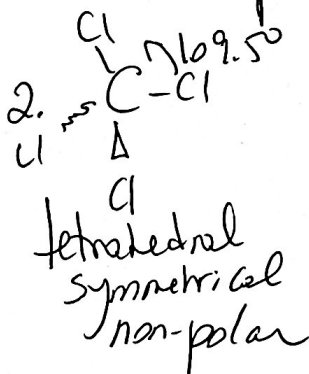 Cl
109.5°
2. C - Cl
Cl
Cl
tetrahedral
symmetrical
non-polar